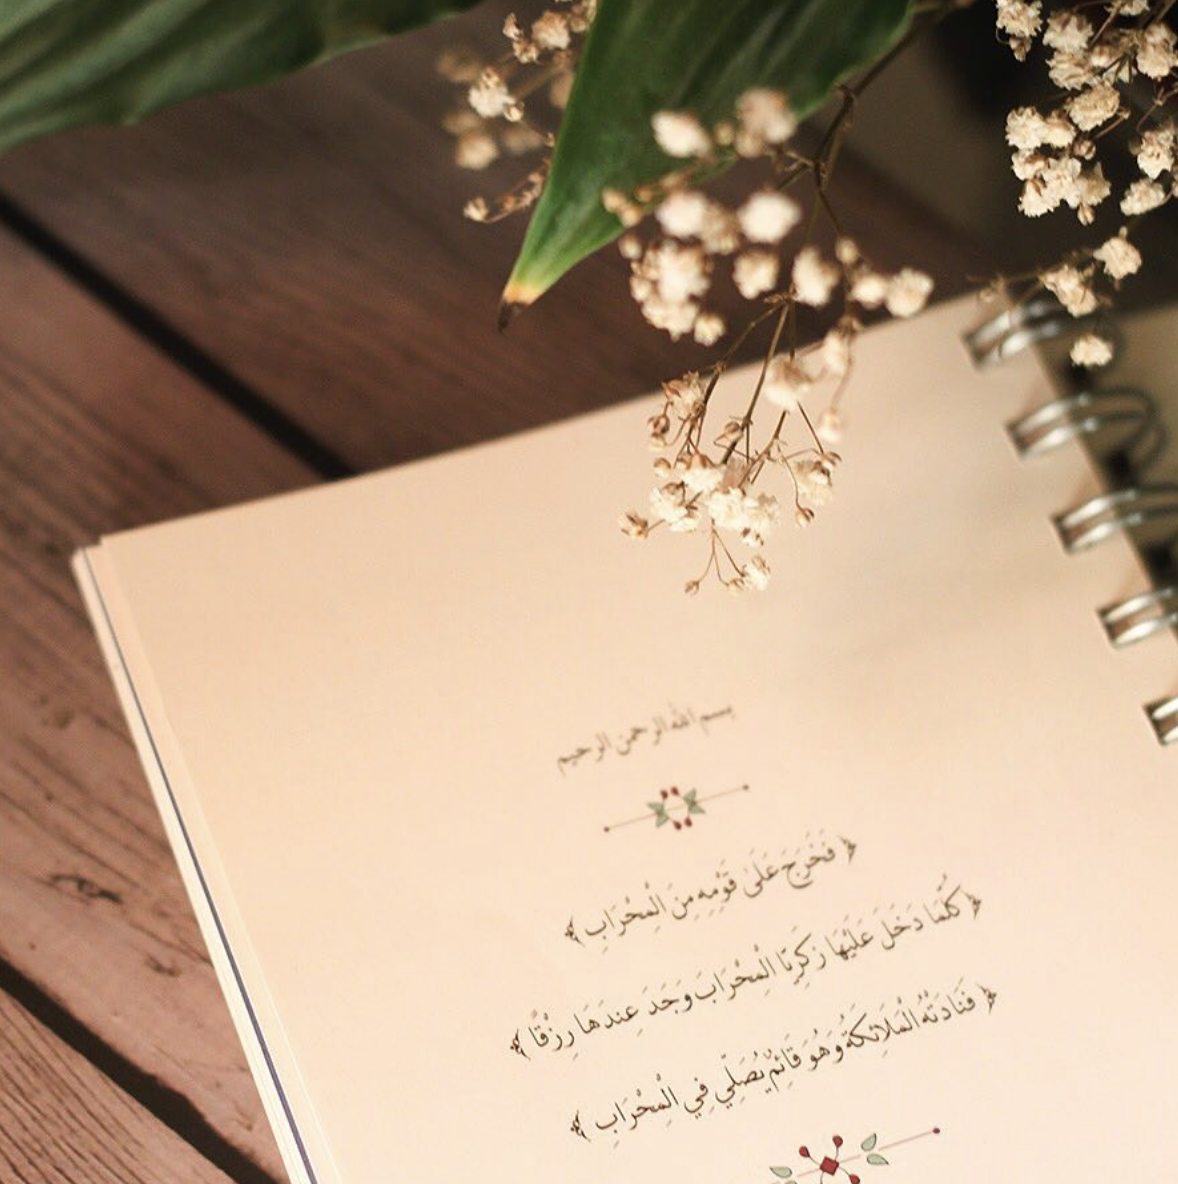 بسم الله الرحمن الرحيم
﴿ فَخَرَجَ عَلَىٰ قَوْمِهِ مِنَ الْمِحْرَابِ ﴾
﴿ كُلَّمَا دَخَلَ عَلَيْهَا زَكَرِيَّا الْمِحْرَابَ وَجَدَ عِندَهَا رِزْقًا ﴾
﴿ فَنَادَتْهُ الْمَلَائِكَةُ وَهُوَ قَائِمٌ يُصَلِّي فِي الْمِحْرَابِ ﴾